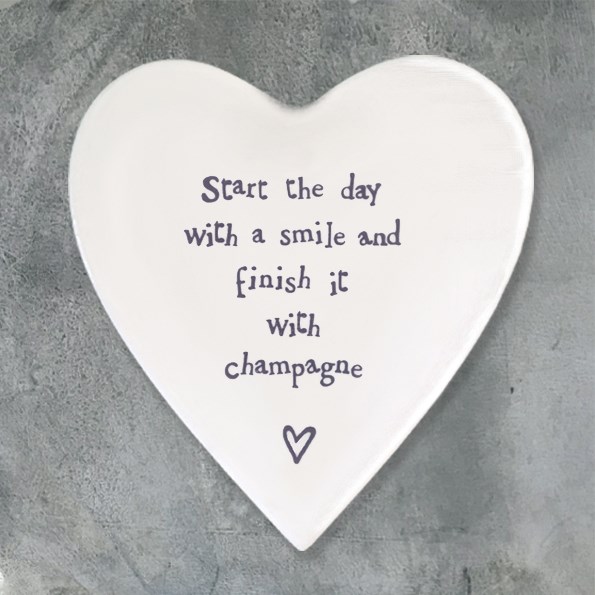 Start the day
with a smile and
finish it
with
champagne